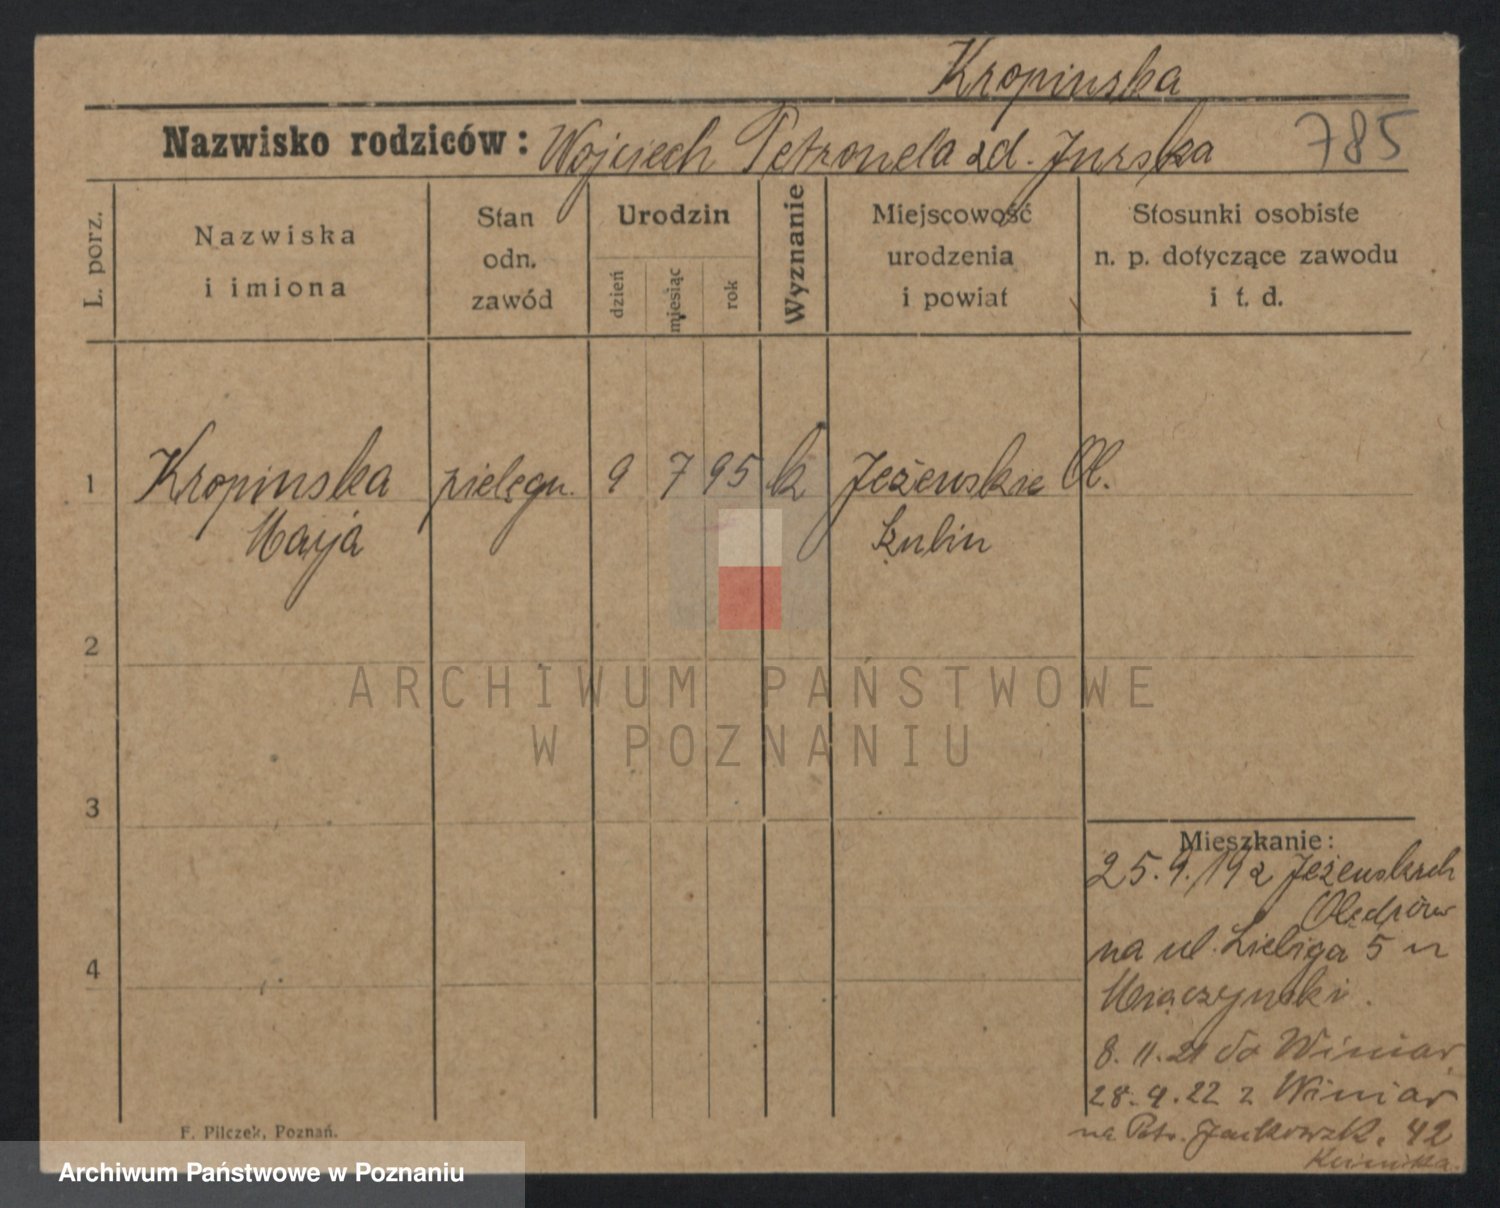 Kropinska
Nazwisko rodziców: Wojciech Petronela zd. Jurska 785
L. porz.
Nazwiska
i imiona
Stan
odn.
zawód
Urodzin
dzień
miesiąc
rok
Wyznanie
Miejscowość
urodzenia
i powiat
Stosunki osobiste
n. p. dotyczące zawodu
i t. d.
1 Kropinska pielęgn. 9 7 95 k Jeżewskie Ol.
Marja Szubin
2
3
4
Mieszkanie:
25.9.19 z Jeżewskich
Olędrów
na ul. Liebiga 5 u
Miączynski.
8.11.21 do Winiar
28.9.22 z Winiar
na Jackowsk. 42
ARCHIWUM PAŃSTWOWE
W POZNANIU
F. Pilczek, Poznań.
Archiwum Państwowe w Poznaniu